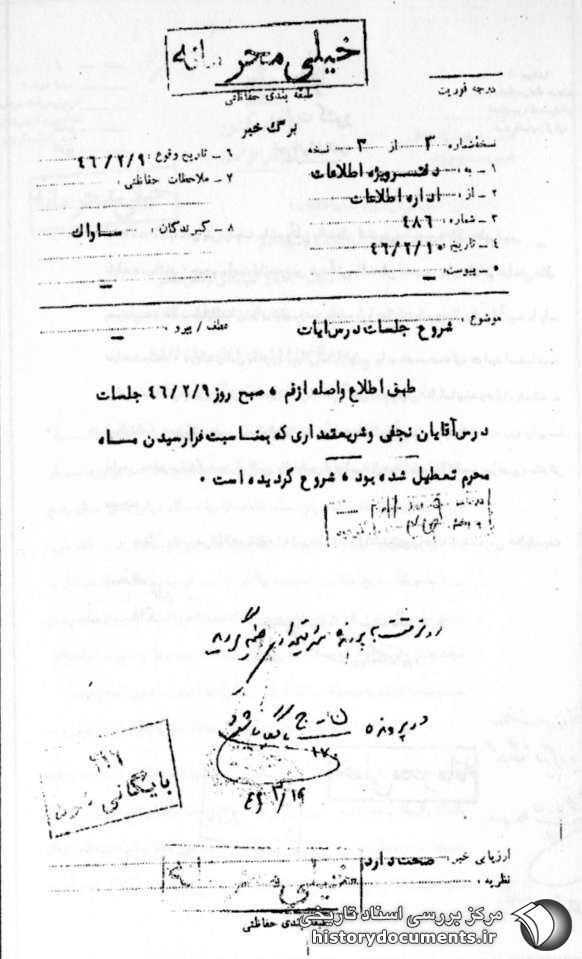 خیلی محرمانه
طبقه بندی حفاظتی
درجه فوریت
برگ خبر
نسخه شماره: ۳ از ۳ نسخه
۱ ـ به: دفتر ویژه اطلاعات
۲ ـ از: اداره اطلاعات
۳ ـ شماره: ۴۸۶
۴ ـ تاریخ: ۴۶/۲/۱۰
پیوست: ـ
۶ ـ تاریخ وقوع: ۴۶/۲/۹
۷ ـ ملاحظات حفاظتی:
۸ ـ گیرندگان: ساواک
موضوع: شروع جلسات درس آیات
عطف / پیرو: ـ
طبق اطلاع واصله از قم ، صبح روز ۴۶/۲/۹ جلسات
درس آقایان نجفی و شریعتمداری که بمناسبت فرارسیدن مـاه
محرم تعطیل شده بود ، شروع گردیده است ۰
در پرونده ن ـ ج بایگانی شود
۱۷
۴۶/۲/۱۹
بایگانی
ارزیابی خبر: صحت دارد
نظریه:
خیلی محرمانه
طبقه بندی حفاظتی
مرکز بررسی اسناد تاریخی
historydocuments.ir